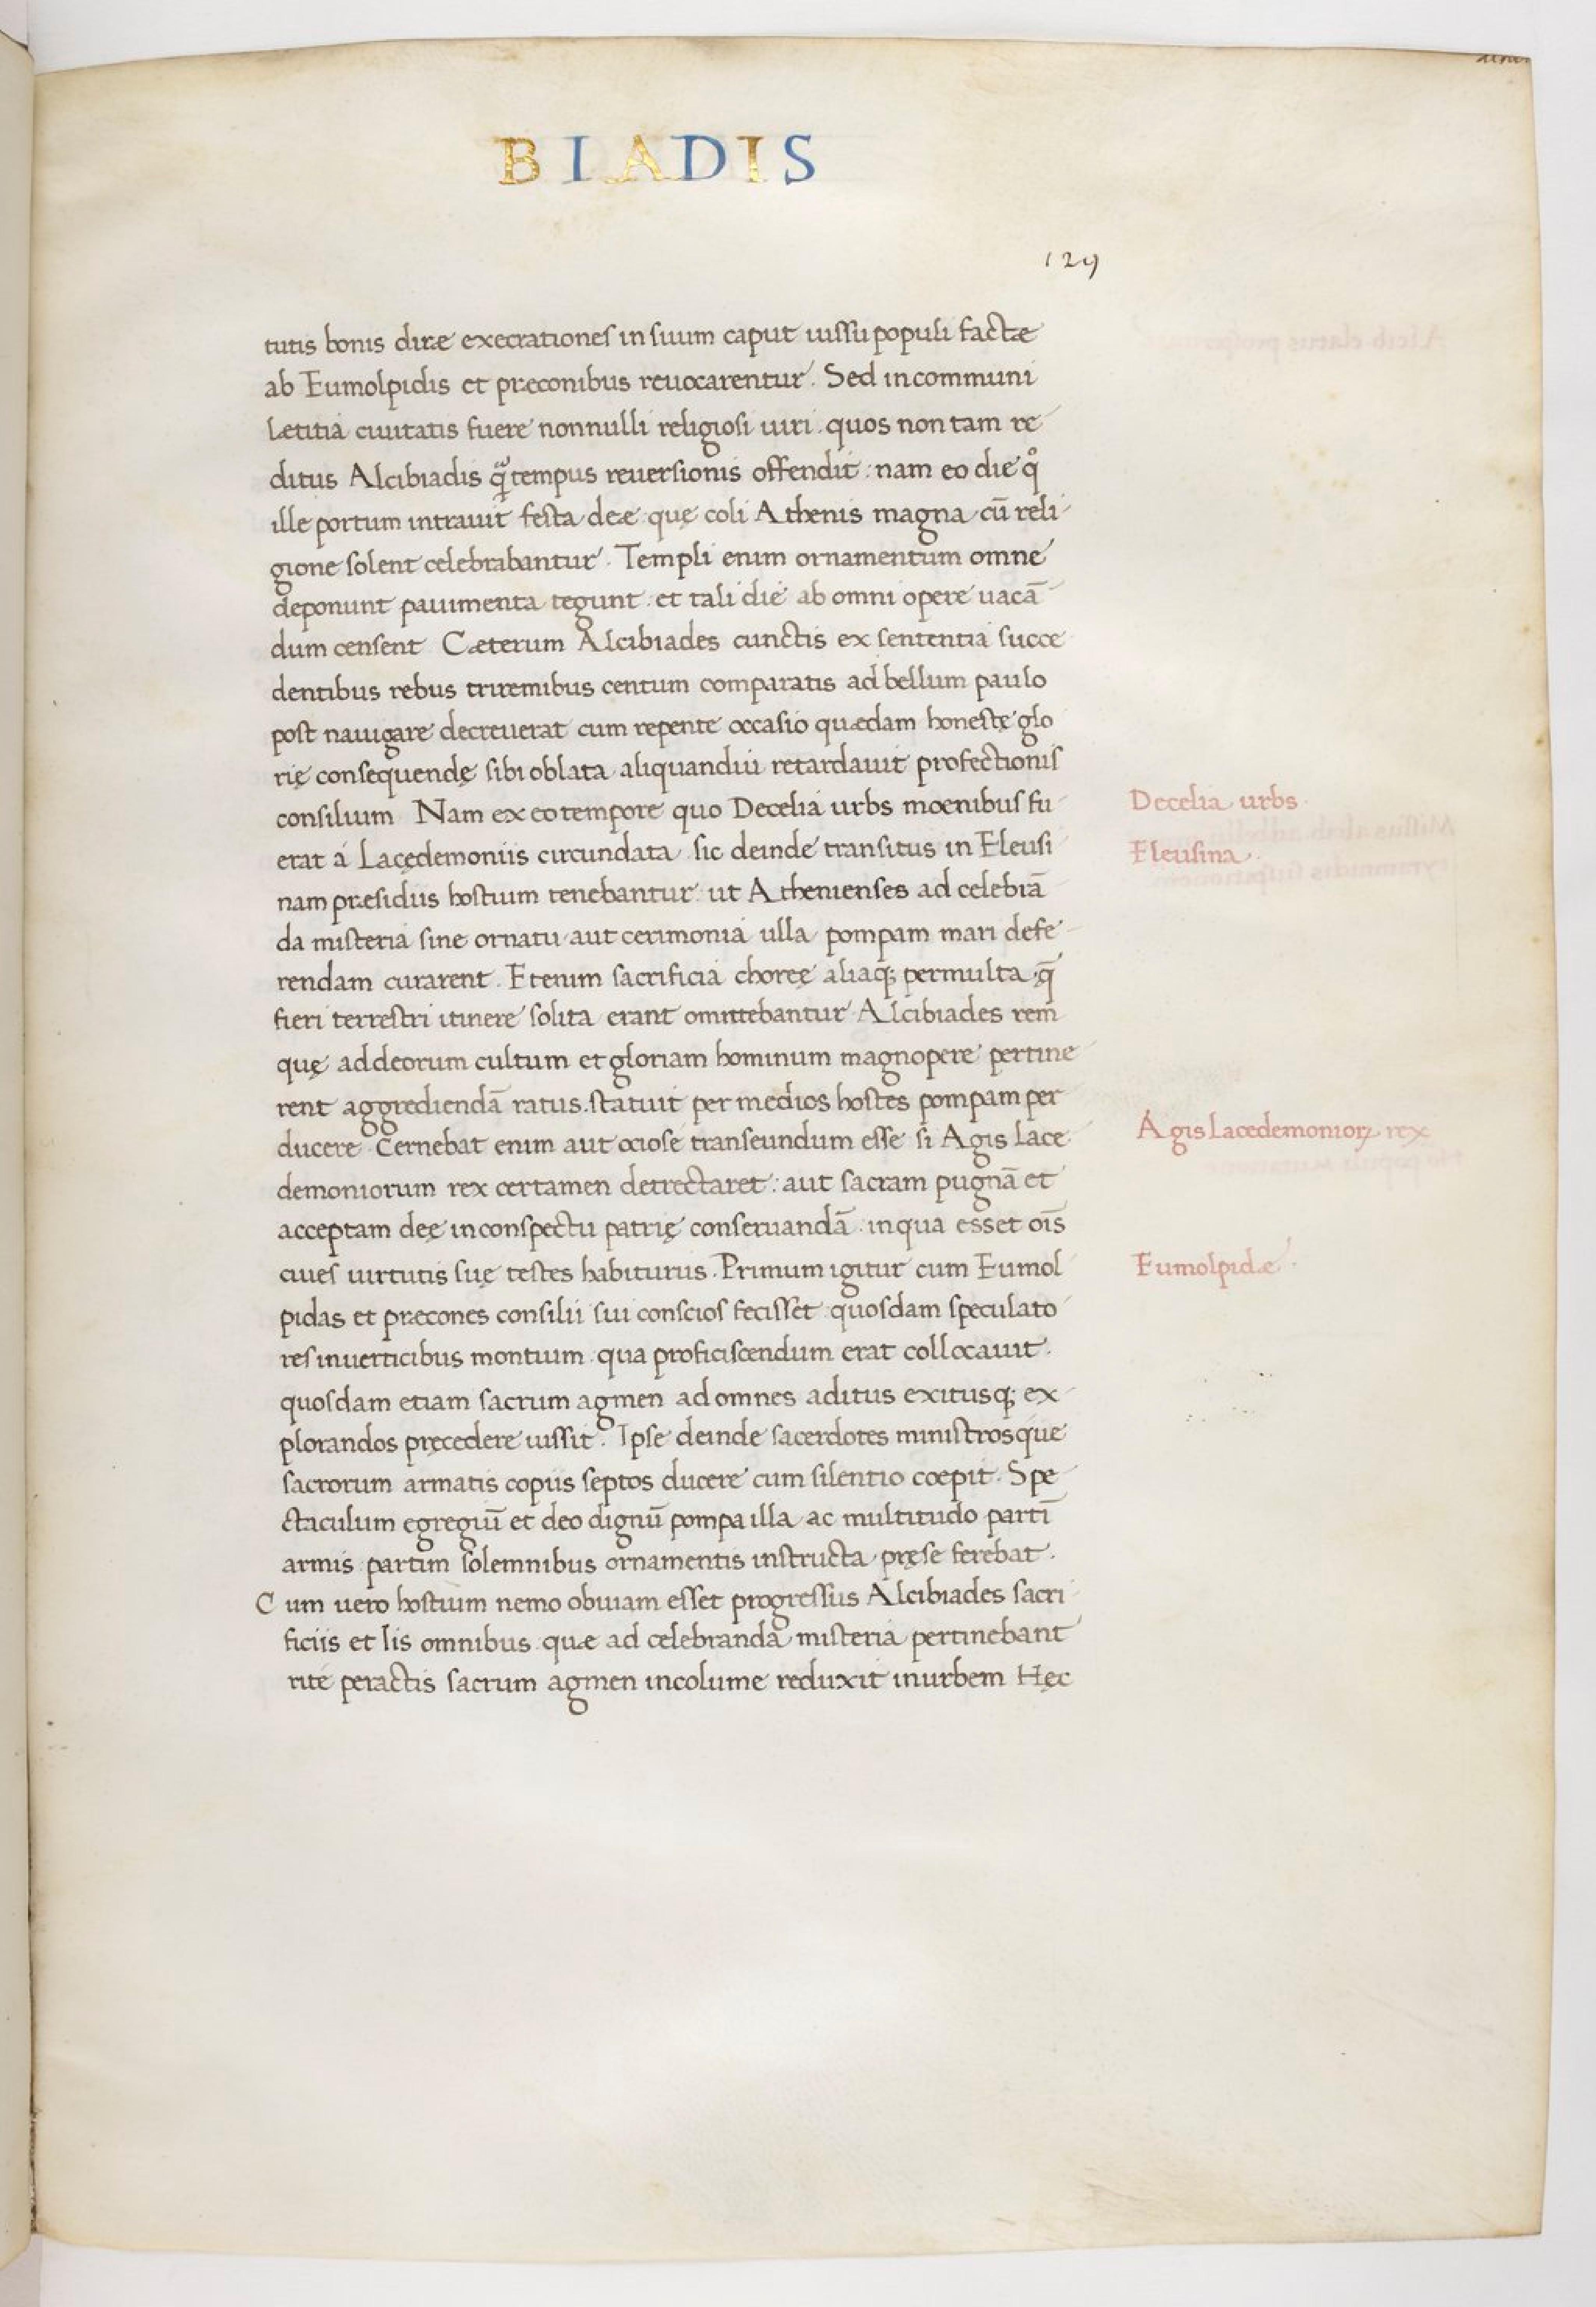 BIADIS
129
tutis bonis diræ execrationes in suum caput iussu populi factæ
ab Eumolpidis et præconibus reuocarentur. Sed in communi
lætitia ciuitatis fuere nonnulli religiosi uiri. quos non tam re
ditus Alcibiadis q̃ tempus reuersionis offendit: nam eo die q̊
ille portum intrauit festa deæ quę coli Athenis magna cū reli
gione solent celebrabantur. Templi enim ornamentum omne
deponunt pauimenta tegunt. et tali die ab omni opere uacā
dum censent Cæterum Alcibiades cunctis ex sententia succe
dentibus rebus triremibus centum comparatis ad bellum paulo
post nauigare decreuerat cum repente occasio quædam honestę glo
rię consequendę sibi oblata aliquandiu retardauit profectionis
consilium Nam ex eo tempore quo Decelia urbs moenibus fu
erat á Lacędemoniis circundata sic deinde transitus in Eleusi
nam præsidiis hostium tenebantur ut Athenienses ad celebrā
da misteria sine ornatu aut cerimonia ulla pompam mari defe
rendam curarent. Etenim sacrificia choręę aliaq; permulta q̄
fieri terrestri itinere solita erant omittebantur Alcibiades rem
quę ad deorum cultum et gloriam hominum magnopere pertine
rent aggrediendā ratus. statuit per medios hostes pompam per
ducere Cernebat enim aut ociose transeundum esse si Agis lace
demoniorum rex certamen detrectaret: aut sacram pugnā et
acceptam deę in conspectu patrię conseruandā in qua esset oīs
ciues uirtutis suę testes habiturus. Primum igitur cum Eumol
pidas et præcones consilii sui conscios fecisset quosdam speculato
res in uerticibus montium qua proficiscendum erat collocauit.
quosdam etiam sacrum agmen ad omnes aditus exitusq; ex
plorandos pręcedere iussit. Ipse deinde sacerdotes ministrosque
sacrorum armatis copiis septos ducere cum silentio coepit. Spe
ctaculum egregiū et deo dignū pompa illa ac multitudo partī
armis partim solemnibus ornamentis instructa pręse ferebat.
Cum uero hostium nemo obuiam esset progressus Alcibiades sacri
ficiis et Iis omnibus quæ ad celebranda misteria pertinebant
rite peractis sacrum agmen incolume reduxit in urbem Hęc
Decelia urbs
Eleusina
Agis Lacedemonioꝝ rex
Eumolpidæ